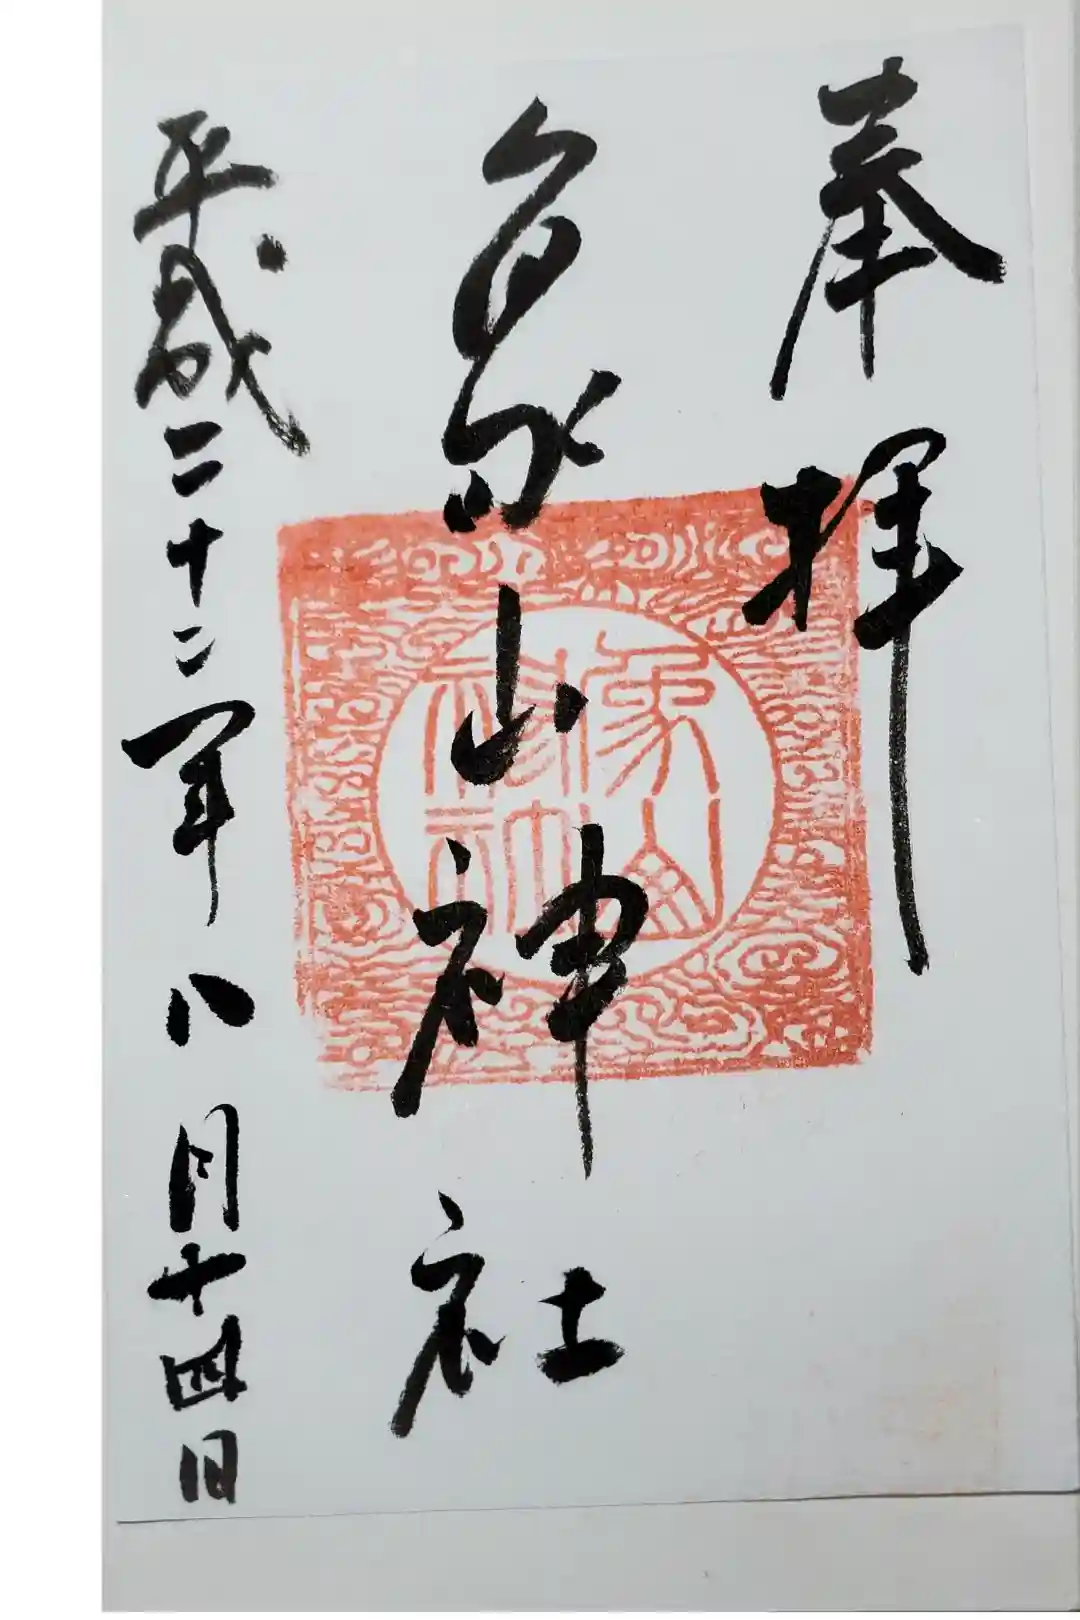 奉拝
象山神社
平成二十二年八月十四日
象山神社